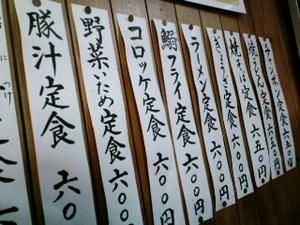 チャンポン定食 六五〇円
焼うどん定食 六五〇円
焼そば定食 六〇〇円
ラーメン定食 六〇〇円
鰯フライ定食 六〇〇円
コロッケ定食 六〇〇円
野菜いため定食 六〇〇円
豚汁定食 六〇